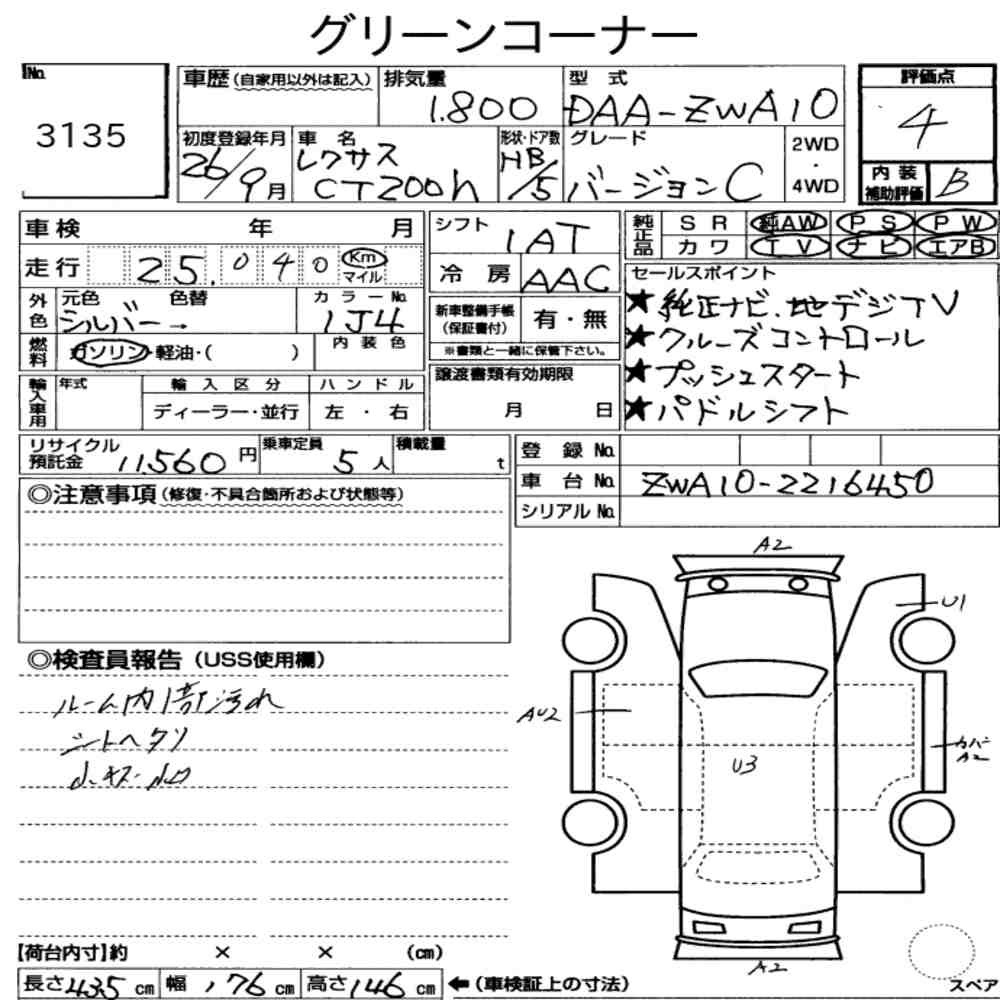 グリーンコーナー
No. 3135
車歴(自家用以外は記入) 排気量 1.800 型式 DAA-ZWA10
評価点 4
内装補助評価 B
初度登録年月 26/9月 車名 レクサス CT200h 形状・ドア数 HB/5 グレード バージョンC 2WD・4WD
車検 年 月
シフト 1AT
純正品 SR 純AW PS PW
カワ TV ナビ エアB
走行 25.040 Km マイル
冷房 AAC
セールスポイント
★純正ナビ.地デジTV
★クルーズコントロール
★プッシュスタート
★パドルシフト
外色 元色 シルバー→ 色替 カラーNo. 1J4
新車整備手帳(保証書付) 有・無
※書類と一緒に保管下さい。
燃料 ガソリン・軽油・( ) 内装色
譲渡書類有効期限 月 日
輸入車用 年式 輸入区分 ハンドル
ディーラー・並行 左・右
リサイクル預託金 11.560円 乗車定員 5人 積載量 t
登録No.
車台No. ZWA10-2216450
シリアルNo.
◎注意事項(修復・不具合箇所および状態等)
◎検査員報告(USS使用欄)
ルーム内1部汚れ
シートヘタリ
小キズ・小凹
A2
U1
AU2
カバーA2
U3
A2
スペア
【荷台内寸】約 × × (cm)
長さ435cm 幅176cm 高さ146cm ←(車検証上の寸法)